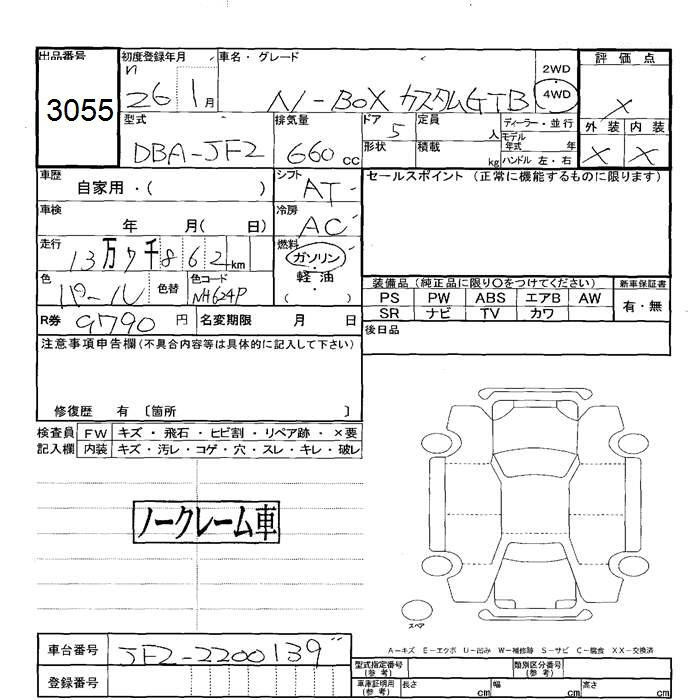 出品番号 初度登録年月 車名・グレード 2WD 評価点
3055 H 26 1月 N-BOX カスタムGTB 4WD X
型式 排気量 ドア 定員 ディーラー・並行 外装 内装
DBA-JF2 660cc 5 人 モデル年式 年 X X
形状 積載 kg ハンドル 左・右
車歴 シフト セールスポイント (正常に機能するものに限ります)
自家用・( ) AT
車検 冷房
年 月( 日) AC
走行 燃料
13万7千862km ガソリン
軽油
色 色替 色コード ( )
パール NH624P
装備品 (純正品に限り○をつけてください) 新車保証書
PS PW ABS エアB AW 有・無
SR ナビ TV カワ
R券 9790円 名変期限 月 日
後日品
注意事項申告欄(不具合内容等は具体的に記入して下さい)
修復歴 有 〔箇所 〕
検査員 FW キズ・飛石・ヒビ割・リペア跡・×要
記入欄 内装 キズ・汚レ・コゲ・穴・スレ・キレ・破レ
ノークレーム車
スペア
A-キズ E-エクボ U-凹み W-補修跡 S-サビ C-腐食 XX-交換済
車台番号 JF2-2200139
登録番号
型式指定番号(参考) 類別区分番号(参考)
車庫証明用(参考) 長さ cm 幅 cm 高さ cm